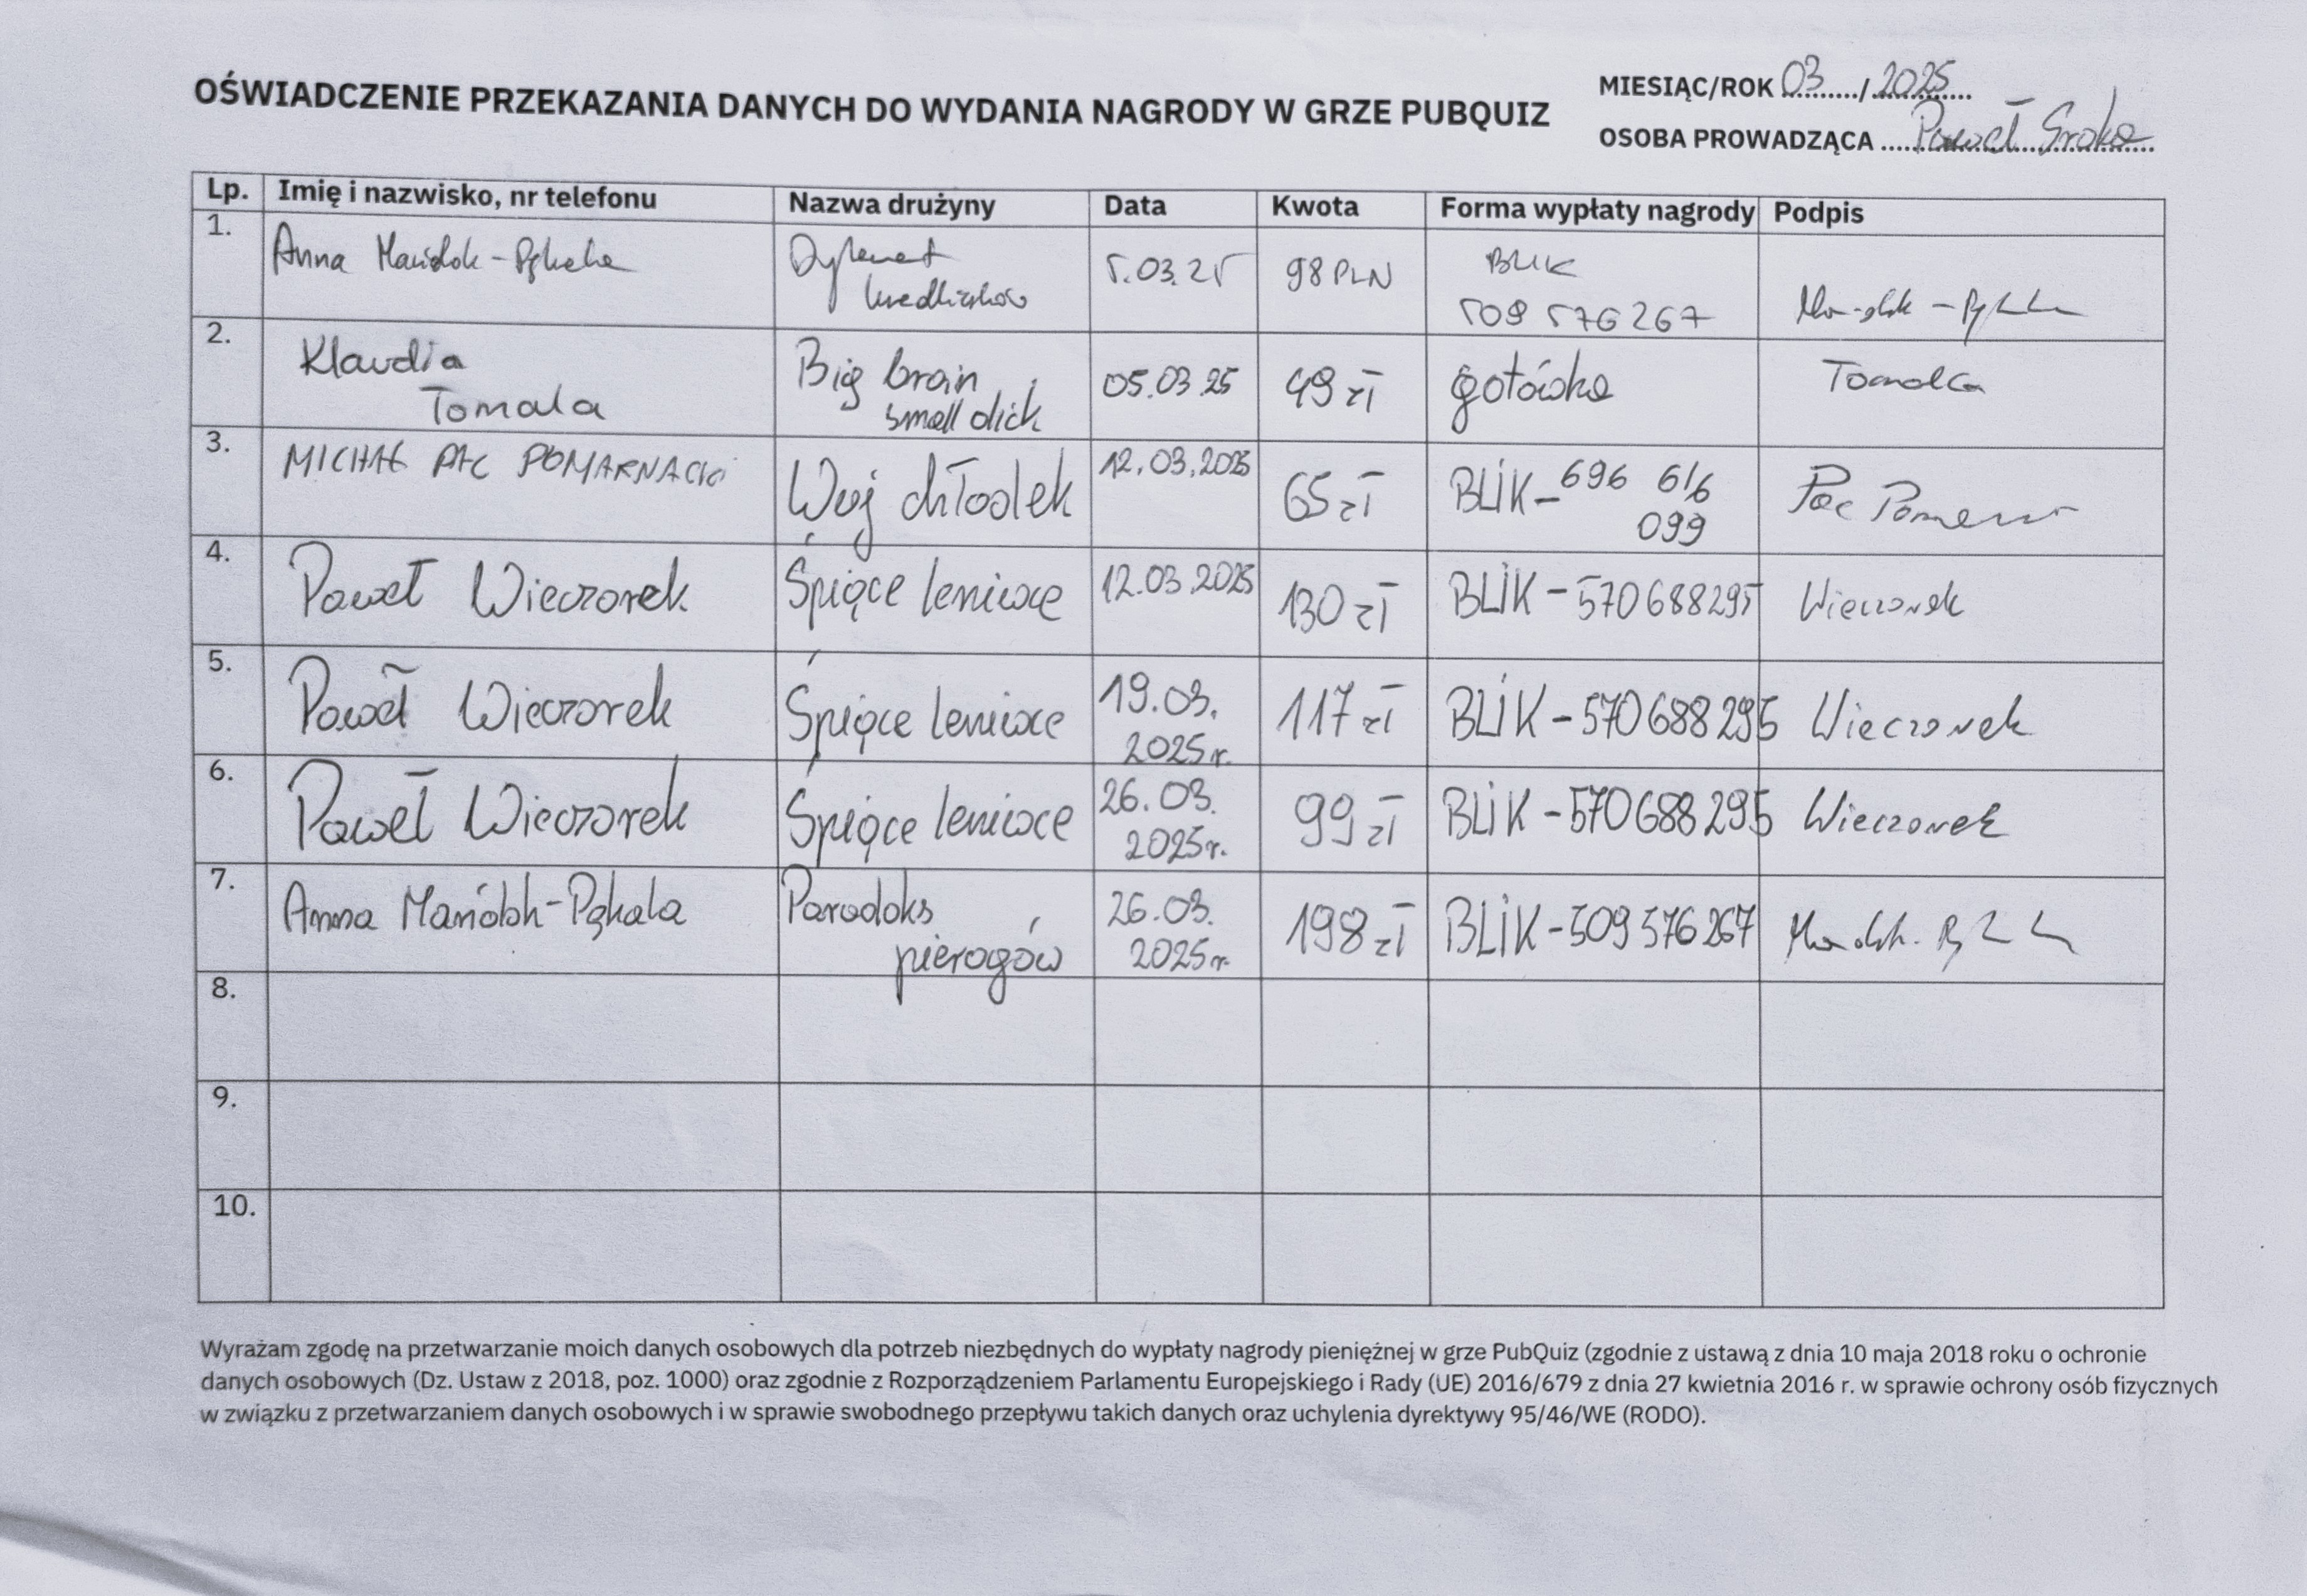 OŚWIADCZENIE PRZEKAZANIA DANYCH DO WYDANIA NAGRODY W GRZE PUBQUIZ
MIESIĄC/ROK 03 / 2025
OSOBA PROWADZĄCA Paweł Sroka
Lp. Imię i nazwisko, nr telefonu Nazwa drużyny Data Kwota Forma wypłaty nagrody Podpis
1. Anna Mańdok-Pękala Dylemat 5.03.25 98 PLN BLIK
509 576 267
2. Klaudia Big brain 05.03.25 49 zł gotówka Tomala
Tomala small dick
3. MICHAŁ PAC POMARNACKI Wuj chłodek 12.03.2025 65 zł BLIK - 696 616 Pac
099
4. Paweł Wieczorek Śpiące leniwce 12.03.2025 130 zł BLIK - 570688295 Wieczorek
5. Paweł Wieczorek Śpiące leniwce 19.03. 117 zł BLIK - 570688295 Wieczorek
2025r.
6. Paweł Wieczorek Śpiące leniwce 26.03. 99 zł BLIK - 570688295 Wieczorek
2025r.
7. Anna Mańdok-Pękala Paradoks 26.03. 198 zł BLIK - 509 576 267
pierogów 2025r.
8.
9.
10.
Wyrażam zgodę na przetwarzanie moich danych osobowych dla potrzeb niezbędnych do wypłaty nagrody pieniężnej w grze PubQuiz (zgodnie z ustawą z dnia 10 maja 2018 roku o ochronie
danych osobowych (Dz. Ustaw z 2018, poz. 1000) oraz zgodnie z Rozporządzeniem Parlamentu Europejskiego i Rady (UE) 2016/679 z dnia 27 kwietnia 2016 r. w sprawie ochrony osób fizycznych
w związku z przetwarzaniem danych osobowych i w sprawie swobodnego przepływu takich danych oraz uchylenia dyrektywy 95/46/WE (RODO).